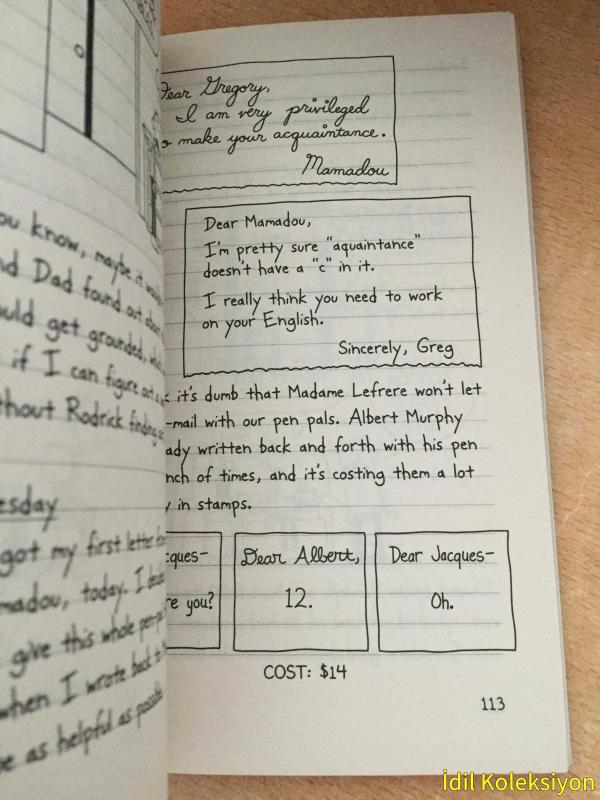 ou know, maybe it
nd Dad found out about
ould get grounded,
if I can figure out a
thout Rodrick finding
esday
got my first letter
madou, today. I
give this whole pen-pal
when I wrote back to
be as helpful as possible
Dear Gregory,
I am very privileged
o make your acquaintance.
Mamadou
Dear Mamadou,
I'm pretty sure "aquaintance"
doesn't have a "c" in it.
I really think you need to work
on your English.
Sincerely, Greg
it's dumb that Madame Lefrere won't let
-mail with our pen pals. Albert Murphy
ady written back and forth with his pen
nch of times, and it's costing them a lot
y in stamps.
cques-
re you?
Dear Albert,
12.
Dear Jacques-
Oh.
COST: $14
113
İdil Koleksiyon